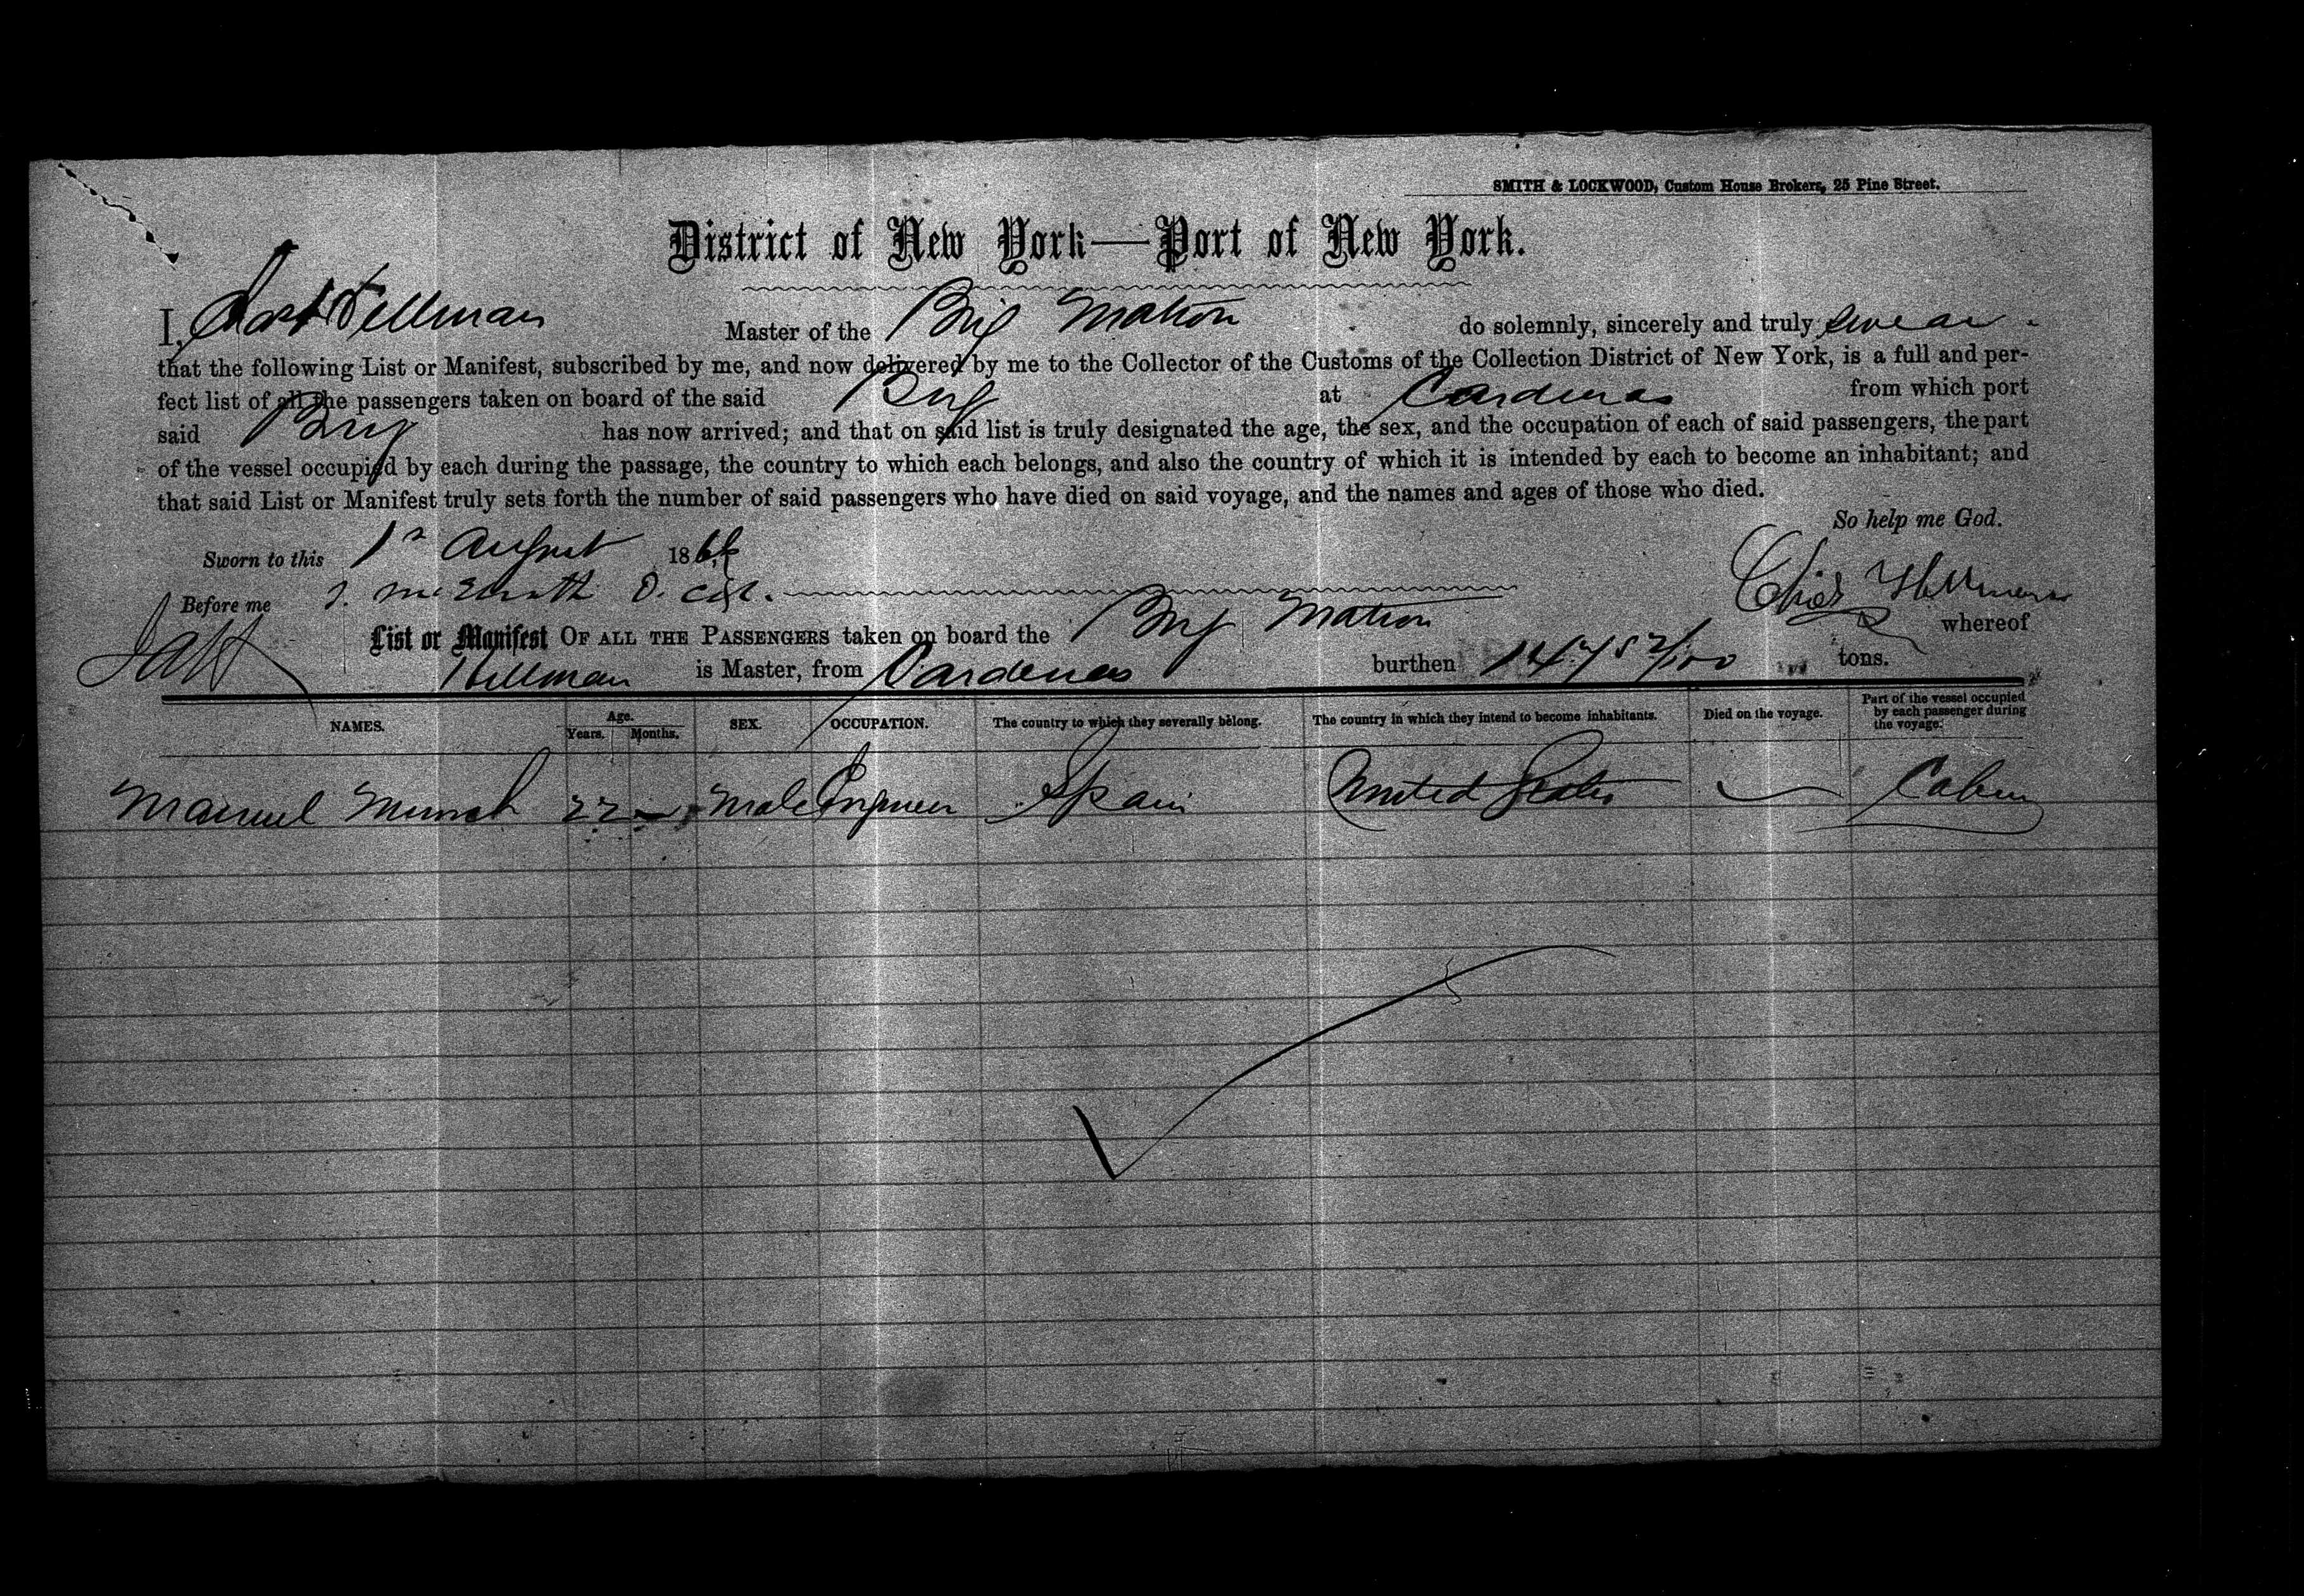 SMITH & LOCKWOOD, Custom House Brokers, 25 Pine Street.
District of New York—Port of New York.
I, Chas Hellman Master of the Brig Matron do solemnly, sincerely and truly swear
that the following List or Manifest, subscribed by me, and now delivered by me to the Collector of the Customs of the Collection District of New York, is a full and per-
fect list of all the passengers taken on board of the said Brig at Cardenas from which port
said Brig has now arrived; and that on said list is truly designated the age, the sex, and the occupation of each of said passengers, the part
of the vessel occupied by each during the passage, the country to which each belongs, and also the country of which it is intended by each to become an inhabitant; and
that said List or Manifest truly sets forth the number of said passengers who have died on said voyage, and the names and ages of those who died.
So help me God.
Sworn to this 1st August 1866
Before me Chas Hellman
List or Manifest OF ALL THE PASSENGERS taken on board the Brig Matron whereof
Hellman is Master, from Cardenas burthen tons.
NAMES. Age. Years. Months. SEX. OCCUPATION. The country to which they severally belong. The country in which they intend to become inhabitants. Died on the voyage. Part of the vessel occupied by each passenger during the voyage.
Manuel 22 — Male Engineer Spain United States — Cabin